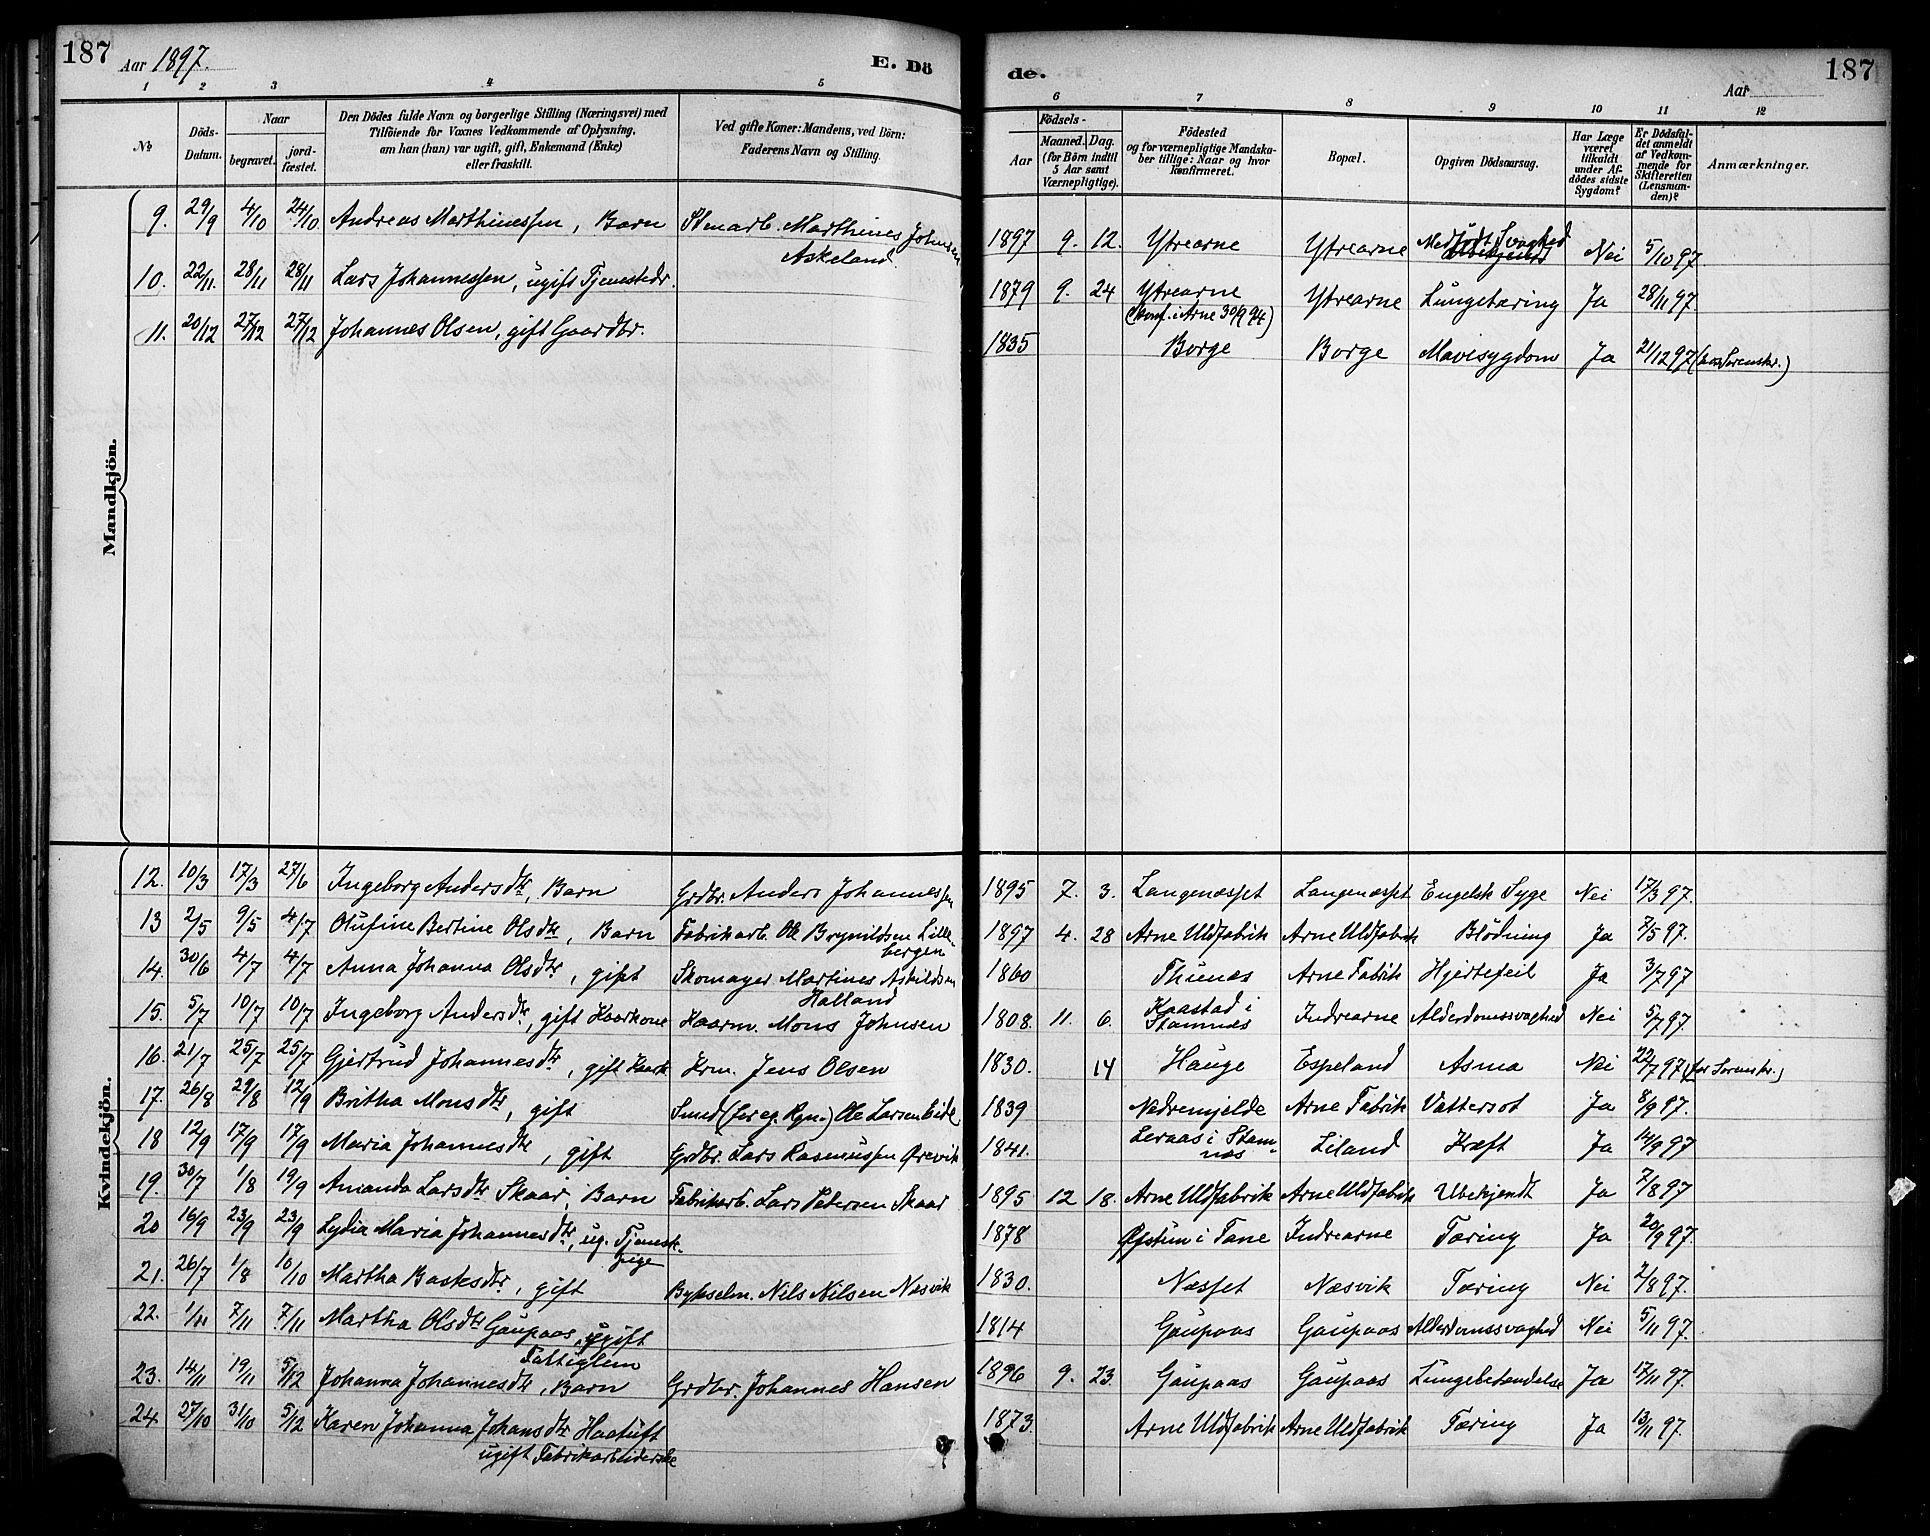 187 Aar 1897. E. Dö
de. Aar 187
1 2 3 4 5 6 7 8 9 10 11 12
No Döds-Datum. Naar begravet. jord-fæstet. Den Dödes fulde Navn og borgerlige Stilling (Næringsvei) med Tilföiende for Voxnes Vedkommende af Oplysning, om han (hun) var ugift, gift, Enkemand (Enke) eller fraskilt. Ved gifte Koner: Mandens, ved Börn: Faderens Navn og Stilling.
Födsels- Aar Maaned. Dag. (for Börn indtil 5 Aar samt Værnepligtige). Födested og for værnepligtige Mandskaber tillige: Naar og hvor konfirmeret. Bopæl. Opgiven Dödsaarsag. Har Læge været tilkaldt under Afdödes sidste Sygdom? Er Dödsfaldet anmeldt af Vedkommende for Skifteretten (Lensmanden)? Anmærkninger.
Mandkjön.
9. 29/9 4/10 24/10. Andreas Marthinessen, Barn Stenarb. Marthines Johnsen Askeland. 1897 9. 12. Ytrearne Ytrearne Medfødt Svaghed Nei 5/10 97.
10. 22/11. 28/11 28/11 Lars Johannessen, ugift Tjenestedr. 1879 9. 24 Ytrearne (Konf. i Arne 30/9 94) Ytrearne Lungetæring Ja 28/11 97.
11. 20/12 27/12 27/12 Johannes Olsen, gift Gaardbr. 1835 Borge Borge Mavesygdom Ja 21/12 97 (for Sorenskr.)
Kvindekjön.
12. 10/3 17/3 27/6 Ingeborg Andersdtr, Barn Grdbr. Anders Johannessen 1895 7. 3. Langenæsset Langenæsset Engelsk Syge Nei 17/3 97.
13 2/5 9/5 4/7 Olufine Bertine Olsdtr, Barn Fabrikarb. Ole Brynildsen Lillebergen 1897 4. 28 Arne Uldfabrik Arne Uldfabrik Blödning Ja 7/5 97.
14. 30/6 4/7 4/7 Anna Johanna Olsdtr, gift Skomager Martines Askildsen Halland 1860 Thunes Arne Fabrik Hjertefeil Ja 3/7 97
15. 5/7 10/7 10/7 Ingeborg Andersdtr, gift Kaarkone Kaarm. Mons Johnsen 1808. 11. 6. Kaastad i Stamnes Indrearne Alderdomssvaghed Nei 5/7 97.
16. 21/7 25/7 25/7 Gjertrud Johannesdtr, gift Kaark. Krm. Jens Olsen 1830. 14 Hauge Espeland Asma Nei 22/7 97 (for Sorenskr.)
17. 26/8 29/8 12/9 Britha Monsdtr, gift Smed (for eg. Rgn.) Ole Larsen Eide 1839 Nedremjelde Arne Fabrik Vattersot Ja 8/9 97.
18 12/9 17/9 17/9 Maria Johannesdtr, gift Grdbr. Lars Rasmussen Ørevik 1841. Leraas i Stamnes Liland Kræft Ja 14/9 97
19. 30/7 1/8 19/9 Amanda Larsdtr Skaar, Barn Fabrikarb. Lars Petersen Skaar 1895 12 18. Arne Uldfabrik Arne Uldfabrik Ubekjendt Ja 7/8 97
20 16/9 23/9 23/9 Lydia Maria Johannesdtr, ug. Tjenestpige 1878 Øfstun i Fane Indrearne Tæring Ja 20/9 97.
21. 26/7 1/8 10/10 Martha Baskesdtr, gift Bykselm. Nils Nilsen Næsvik 1830. Næsset Næsvik Tæring Nei 2/8 97.
22. 1/11 7/11 7/11 Martha Olsdtr Gaupaas, ugift Fattiglem 1814 Gaupaas Gaupaas Alderdomssvaghed Nei 5/11 97.
23. 14/11 19/11 5/12 Johanna Johannesdtr, Barn Grdbr. Johannes Hansen 1896 9. 23. Gaupaas Gaupaas Lungebetændelse Ja 17/11 97.
24 27/10 31/10 5/12 Karen Johanna Johansdtr Haatuft ugift Fabrikarbeiderske 1873. Arne Uldfabrik Arne Uldfabrik Tæring Ja 13/11 97.